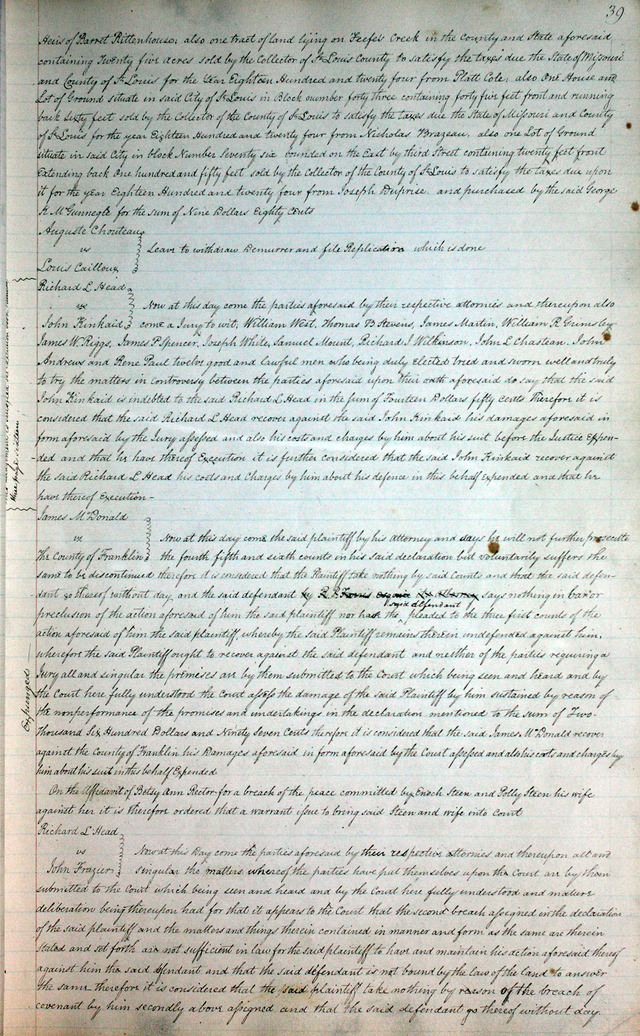 39
Heirs of Barret Rittenhouse, also one tract of land lying on Feefe's Creek in the County and State aforesaid
containing Twenty five acres sold by the Collector of St Louis County to satisfy the taxes due the State of Missouri
and County of St Louis for the Year Eighteen Hundred and twenty four from Platt Cole, also One House and
Lot of Ground situate in said City of St Louis in Block number forty three containing forty five feet front and running
back Sixty feet sold by the Collector of the County of St Louis to satisfy the taxes due the State of Missouri and County
of St Louis for the year Eighteen Hundred and twenty four from Nicholas Brazeau, also one Lot of Ground
situate in said City in block Number Seventy six bounded on the East by third Street containing twenty feet front
Extending back One hundred and fifty feet sold by the Collector of the County of St Louis to satisfy the taxes due upon
it for the year Eighteen Hundred and twenty four from Joseph Duprise, and purchased by the said George
R McGunnegle for the sum of Nine Dollars Eighty Cents
Auguste Chouteau
vs Leave to withdraw Demurrer and file Replication which is done
Louis Cailloux
Richard L Head
vs Now at this day come the parties aforesaid by their respective attornies and thereupon also
John Kinkaid come a Jury to wit, William West, Thomas B Stevens, James Martin, William R Grimsley
James W Riggs, James P Spencer, Joseph White, Samuel Mount, Richard J Wilkinson, John L Chastean, John
Andrews and Rene Paul twelve good and lawful men who being duly Elected tried and sworn well and truly
to try the matters in controversy between the parties aforesaid upon their oath aforesaid do say that the said
John Kinkaid is indebted to the said Richard L Head in the sum of Fourteen Dollars fifty cents Therefore it is
considered that the said Richard L Head recover against the said John Kinkaid his damages aforesaid in
form aforesaid by the Jury assessed and also his costs and charges by him about his suit before the Justice Expen-
ded and that he have thereof Execution it is further considered that the said John Kinkaid recover against
the said Richard L Head his costs and charges by him about his defence in this behalf expended and that he
have thereof Execution-
James McDonald
vs Now at this day come the said plaintiff by his attorney and says he will not further prosecute
The County of Franklin the fourth fifth and sixth counts in his said declaration but voluntarily suffers the
same to be discontinued therefore it is considered that the Plaintiff take nothing by said Counts and that the said defen-
dant go thereof without day, and the said defendant says nothing in bar or
said defendant
preclusion of the action aforesaid of him the said plaintiff nor has the pleaded to the three first counts of the
action aforesaid of him the said plaintiff whereby the said Plaintiff remains therein undefended against him,
wherefore the said Plaintiff ought to recover against the said defendant and neither of the parties requiring a
Jury all and singular the premises are by them submitted to the Court which being seen and heard and by
the Court here fully understood the Court assess the damage of the said Plaintiff by him sustained by reason of
the nonperformance of the promises and undertakings in the declaration mentioned to the sum of Two
thousand Six Hundred Dollars and Ninety Seven Cents therefore it is considered that the said James McDonald recover
against the County of Franklin his Damages aforesaid in form aforesaid by the Court assessed and also his costs and charges by
him about his suit in this behalf Expended
Expunged
On the Affidavit of Betsey Ann Rector for a breach of the peace committed by Enoch Steen and Polly Steen his wife
against her it is therefore ordered that a warrant issue to bring said Steen and wife into Court
Richard L Head
vs Now at this Day come the parties aforesaid by their respective attornies and thereupon all and
John Frazier singular the matters whereof the parties have put themselves upon the Court are by them
submitted to the Court which being seen and heard and by the Court here fully understood and mature
deliberation being thereupon had for that it appears to the Court that the second breach assigned in the declaration
of the said plaintiff and the matters and things therein contained in manner and form as the same are therein
stated and set forth are not sufficient in law for the said plaintiff to have and maintain his action aforesaid thereof
against him the said defendant and that the said defendant is not bound by the law of the land to answer
the same therefore it is considered that the said plaintiff take nothing by reason of the breach of
covenant by him secondly above assigned and that the said defendant go thereof without day.